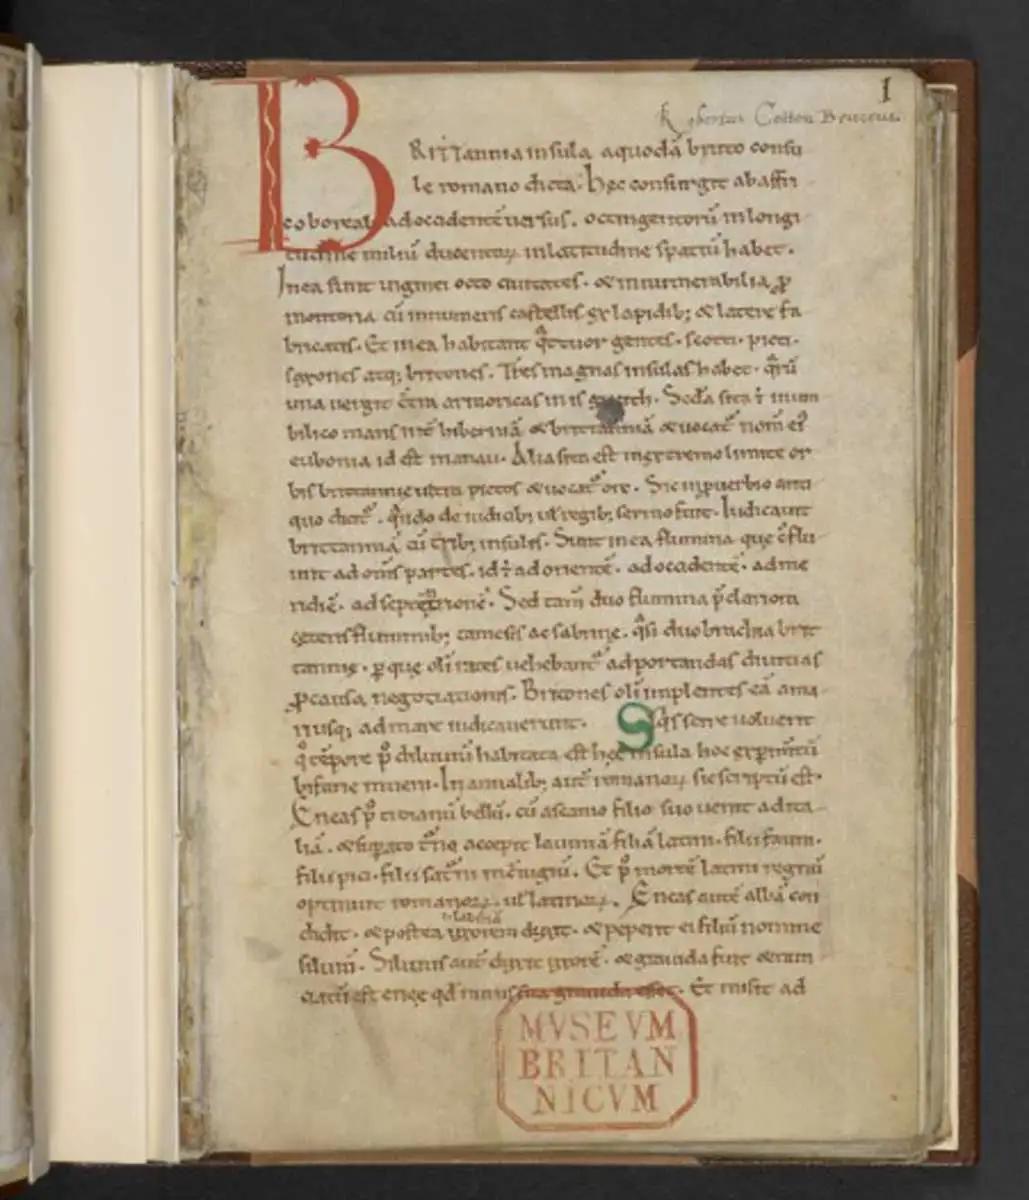 1
Robertus Cotton Bruceus
BRITTannia insula a quodā britto consu
le romano dicta. Hęc consurgit ab affri
co boreali ad occidentē uersus. octingentorū in longi
tudine miliū ducentoꝝ in latitudine spatiū habet.
In ea sunt uiginti octo ciuitates. & innumerabilia ꝓ
montoria cū innumeris castellis ex lapidib; & latere fa
bricatis. Et in ea habitant qͣttuor gentes. scotti. picti.
saxones atq; britones. Tres magnas insulas habet. qͣrū
una uergit cͦtra armoricas in is gueith. Secda sita ÷ in um
bilico maris int̄ hiberniā & brittanniā & uocat᷑ nom̄ ei᷒
eubonia id est manau. Alia sita est in extremo limite or
bis brittannię ultra pictos & uocat᷑ orc. Sic in ꝓuerbio anti
quo dicit᷑. qͣndo de iudicib; ul̄ regib; sermo fuit. Iudicauit
brittanniā cū trib; insulis. Sunt in ea flumina que cͦflu
unt ad om̄s partes. id ÷ ad orientē. ad occidentē. ad me
ridiē. ad septētrionē. Sed tam̄ duo flumina p̄clariora
cęteris fluminib; tamesis ac sabrine. qͣsi duo brachia brit
tannię. ꝑ que oli rates uehebant᷑ ad portandas diuitias
ꝓ causa negotiationis. Britones oli implentes eā a ma
ri usq; ad mare iudicauerunt. Siqͥs scire uoluerit
qͦ tēpore p᷒ diluuiū habitata est hęc insula hoc exp̄im̄tū
bifarie inueni. In annalib; aut̄ romanoꝝ sic scriptū est.
Eneas p᷒ troianū bellū. cū ascanio filio suo uenit ad ita
liā. & supato t᷑no accepit lauiniā filiā latini. filii fauni.
filii pici. filii saturni in cͦiugiū. Et p᷒ mortē latini regnū
optinuit romanoꝝ. ul̄ latinoꝝ. Eneas autē albā con
didit. & postea uxorem duxit. & peperit ei filiū nomine
siluiū. Siluius aut̄ duxit uxorē. & grauida fuit & nun
ciatū est enęę qd̄ nurus sua grauida esset. Et misit ad
MVSEVM
BRITAN
NICVM